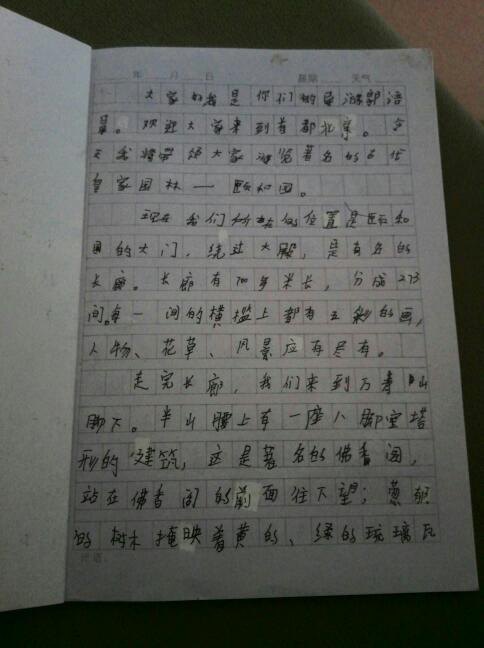 年 月 日 星期 天气
大家好我是你们的导游郭语
景。欢迎大家来到首都北京。今
天我将带领大家游览著名的古代
皇家园林一颐和园。
现在我们所站的位置是颐和
园的大门，绕过大殿，是有名的
长廊。长廊有700多米长，分成273
间。每一间的横槛上都有五彩的画，
人物、花草、风景应有尽有。
走完长廊，我们来到万寿山
脚下。半山腰上有一座八脚宝塔
形的建筑，这是著名的佛香阁，
站在佛香阁的前面往下望；葱郁
的树木掩映着黄的、绿的琉璃瓦
评语：